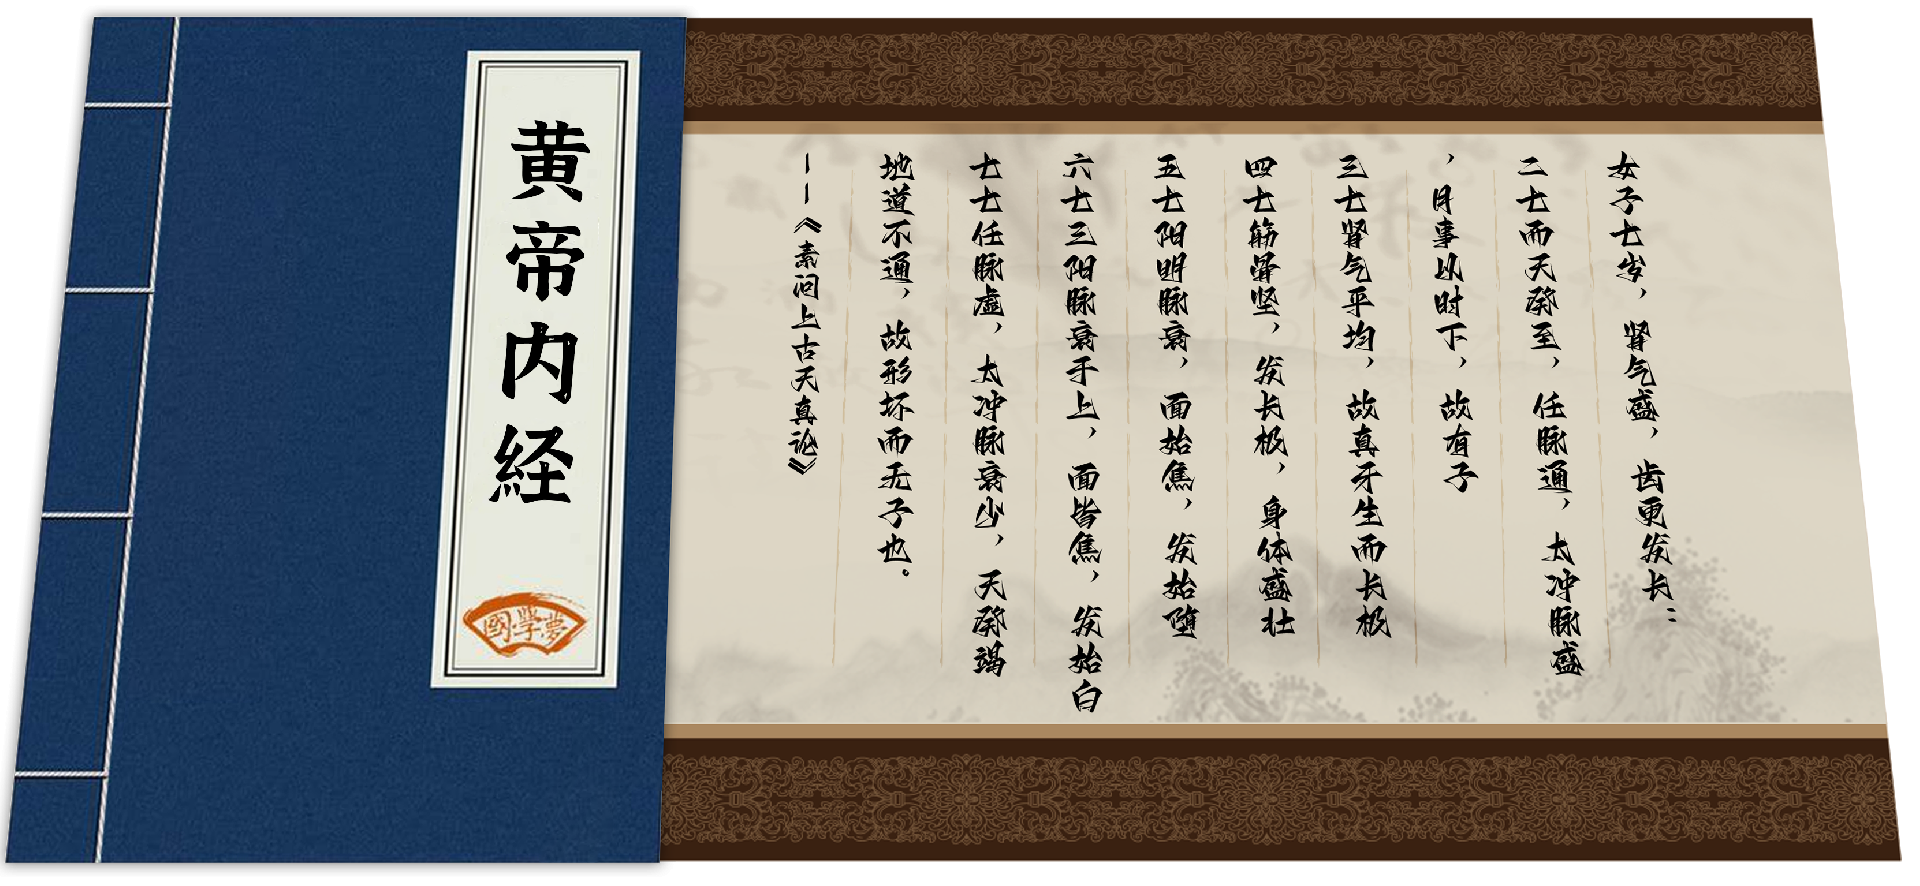 黄帝内经
國學夢
女子七岁，肾气盛，齿更发长：
二七而天癸至，任脉通，太冲脉盛
，月事以时下，故有子
三七肾气平均，故真牙生而长极
四七筋骨坚，发长极，身体盛壮
五七阳明脉衰，面始焦，发始堕
六七三阳脉衰于上，面皆焦，发始白
七七任脉虚，太冲脉衰少，天癸竭
地道不通，故形坏而无子也。
——《素问上古天真论》